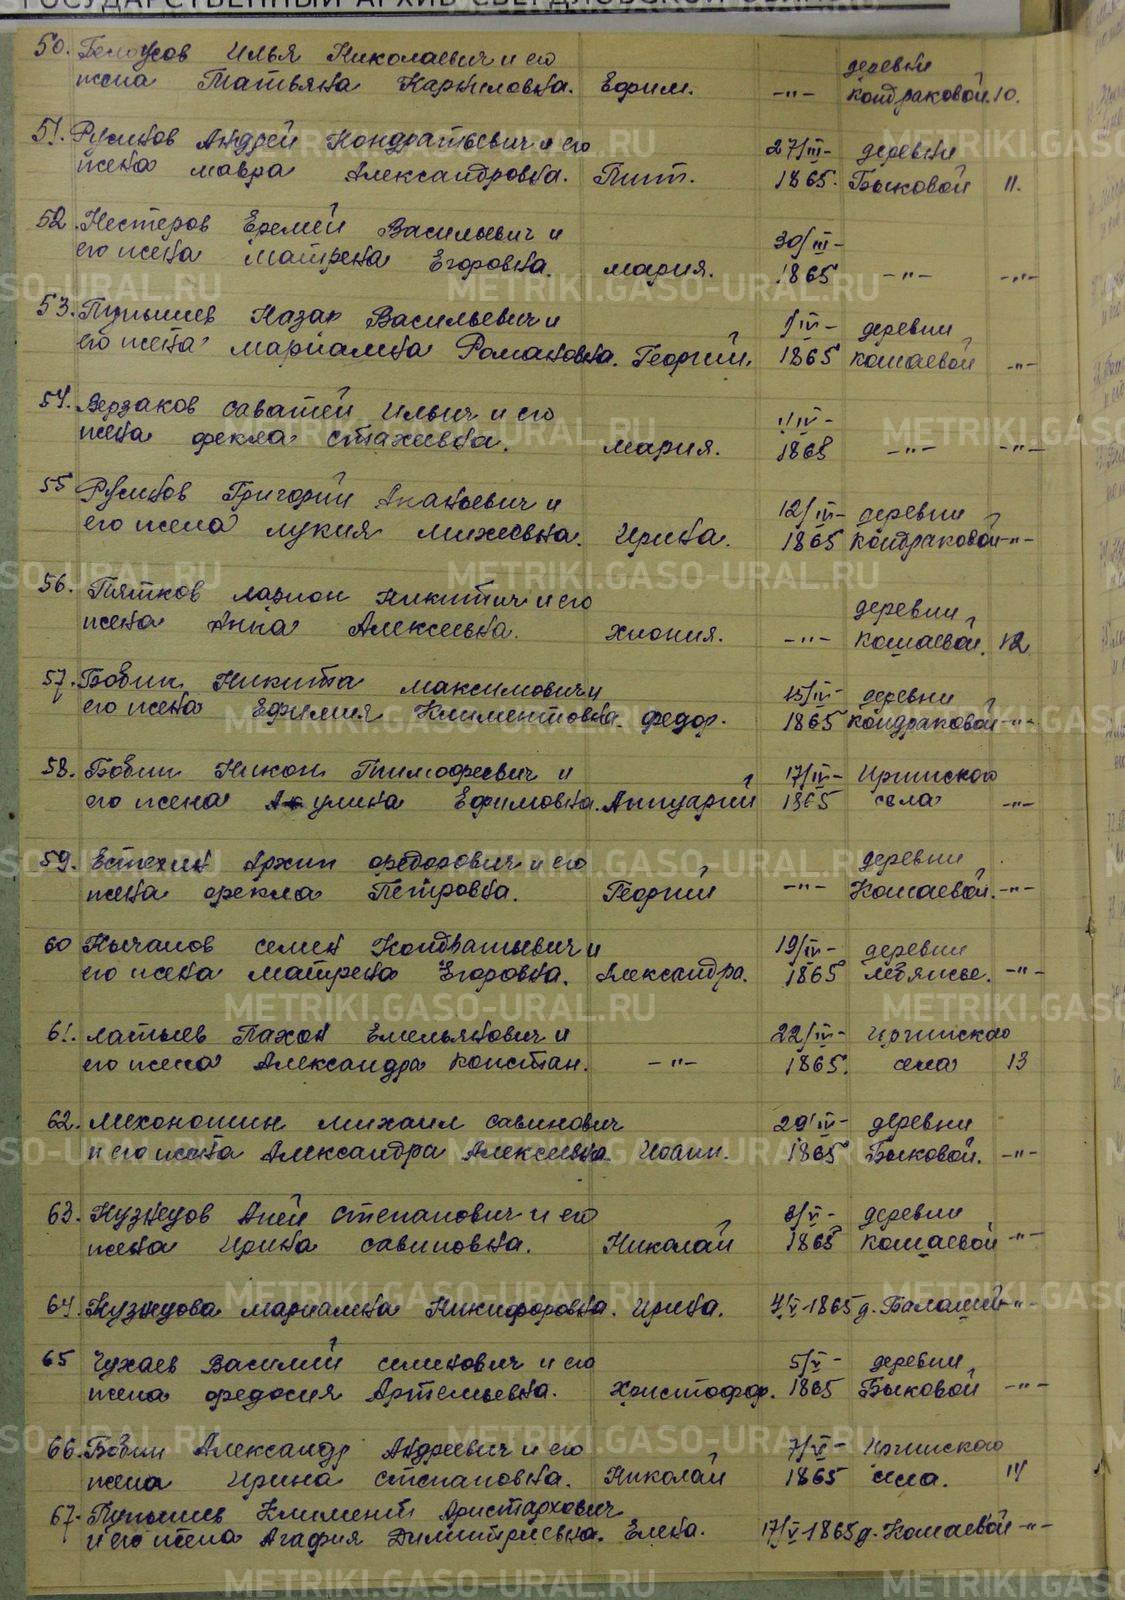 ГОСУДАРСТВЕННЫЙ АРХИВ СВЕРДЛОВСКОЙ ОБЛАСТИ
50. Белоусов Илья Николаевич и его
жена Татьяна Карниловна. Ефрим. -"- деревни Кондраковой. 10.
51. Русинов Андрей Кондратьевич и его 27/III- деревни
жена Мавра Александровна. Тит. 1865. Быковой 11.
52. Нестеров Еремей Васильевич и 30/III-
его жена Матрена Егоровна. Мария. 1865 -"- -"-
53. Пупышев Назар Васильевич и 1/IV- деревни
его жена Мариамна Романовна. Георгий. 1865 Кошаевой -"-
54. Верзаков Саватей Ильич и его 1/IV-
жена Фекла Стахеевна. Мария. 1865 -"- -"-
55 Русинов Григорий Ананьевич и 12/IV- деревни
его жена Лукия Михеевна. Ирина. 1865 Кондраковой -"-
56. Пятков Ларион Никитич и его деревни
жена Анна Алексеевна. Хиония. -"- Кошаевой. 12
57. Бобин Никита Максимович и 15/IV- деревни
его жена Ефимия Климентовна. Федор. 1865 Кондраковой -"-
58. Бобин Никон Тимофеевич и 17/IV- Иргинского
его жена Акулина Ефимовна. Аннуарий 1865 села -"-
59. Естехин Архип Федорович и его деревни
жена Фекла Петровна. Георгий -"- Кошаевой. -"-
60 Нычапов Семен Кондратьевич и 19/IV- деревни
его жена Матрена Егоровна. Александра. 1865 Лебяжье. -"-
61. Латыев Пахон Емельянович и 22/IV- Иргинского
его жена Александра Констан. -"- 1865. села 13
62. Мехоношин Михаил Савинович 29/IV- деревни
и его жена Александра Алексеевна Иоанн. 1865 Быковой. -"-
63. Кузнецов Аней Степанович и его 2/V- деревни
жена Ирина Савиновна. Николай 1865 Кошаевой -"-
64. Кузнецова Мариамна Никифоровна. Ирина. 4/V-1865 д. Балаши -"-
65 Чухаев Василий Семенович и его 5/V- деревни
жена Федосия Артемьевна. Христофор. 1865 Быковой -"-
66. Бобин Александр Андреевич и его 7/V- Иргинского
жена Ирина Степановна. Николай 1865 села. 14
67. Пупышев Климент Аристархович
и его жена Агафия Димитриевна. Елена. 17/V-1865 д. Кошаевой -"-
METRIKI.GASO-URAL.RU